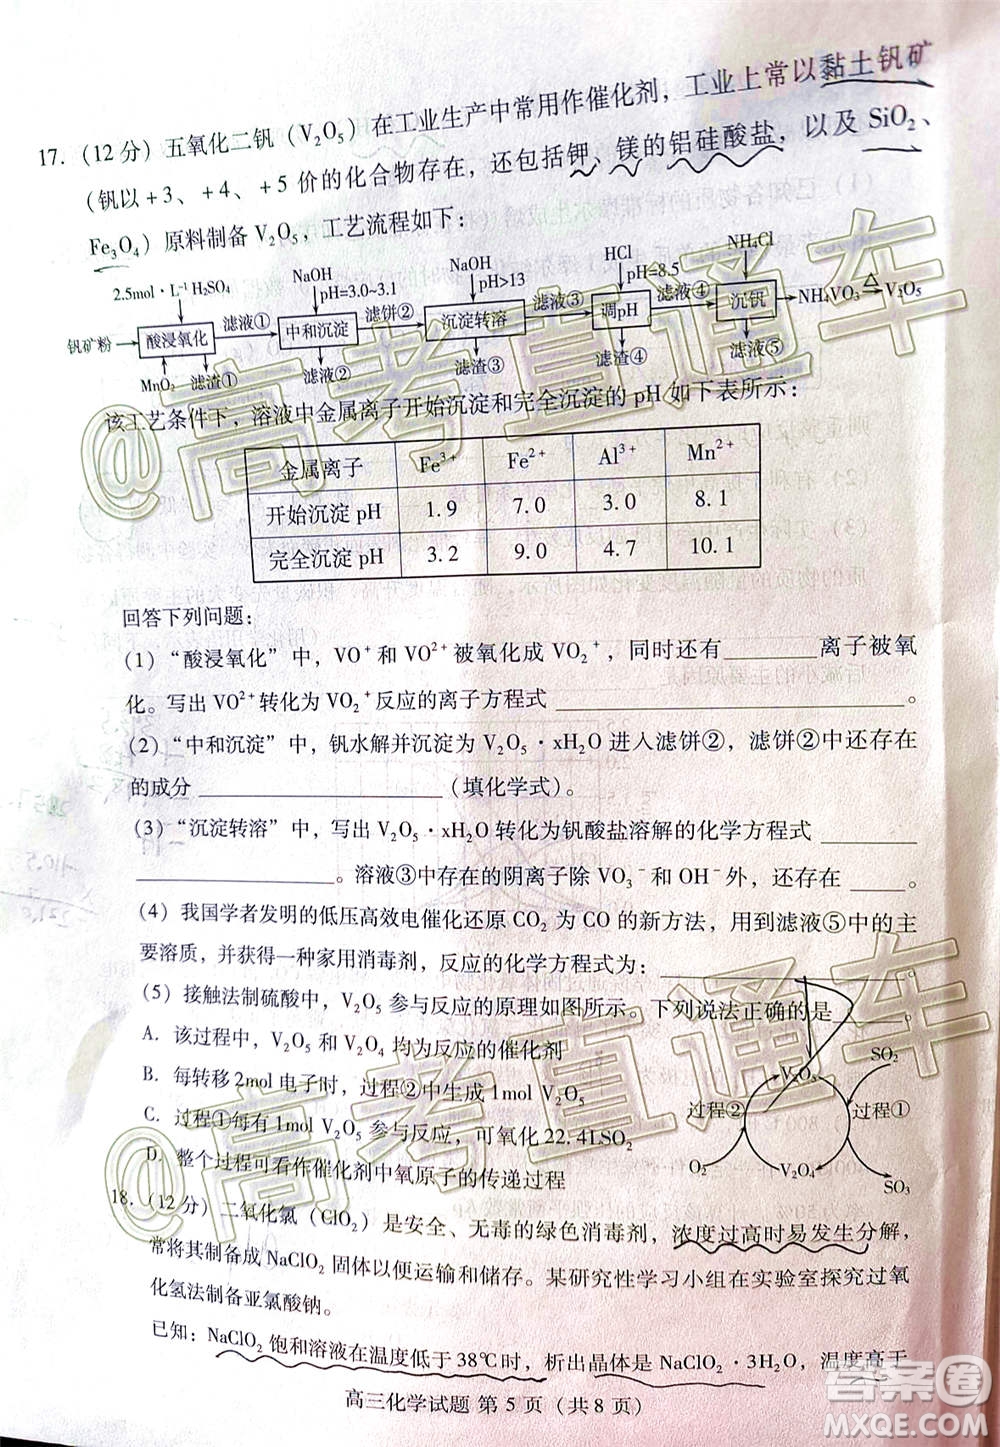 17.（12分）五氧化二钒（V₂O₅）在工业生产中常用作催化剂，工业上常以黏土钒矿
（钒以+3、+4、+5价的化合物存在，还包括钾、镁的铝硅酸盐，以及SiO₂、
Fe₃O₄）原料制备V₂O₅，工艺流程如下：
2.5mol·L⁻¹H₂SO₄ NaOH pH=3.0~3.1 NaOH pH>13 HCl pH=8.5 NH₄Cl
钒矿粉 酸浸氧化 滤液① 中和沉淀 滤饼② 沉淀转溶 滤液③ 调pH 滤液④ 沉钒 NH₄VO₃ △ V₂O₅
MnO₂ 滤渣① 滤液② 滤渣③ 滤渣④ 滤液⑤
该工艺条件下，溶液中金属离子开始沉淀和完全沉淀的pH如下表所示：
金属离子 Fe³⁺ Fe²⁺ Al³⁺ Mn²⁺
开始沉淀pH 1.9 7.0 3.0 8.1
完全沉淀pH 3.2 9.0 4.7 10.1
回答下列问题：
（1）“酸浸氧化”中，VO⁺和VO²⁺被氧化成VO₂⁺，同时还有______离子被氧
化。写出VO²⁺转化为VO₂⁺反应的离子方程式______。
（2）“中和沉淀”中，钒水解并沉淀为V₂O₅·xH₂O进入滤饼②，滤饼②中还存在
的成分______（填化学式）。
（3）“沉淀转溶”中，写出V₂O₅·xH₂O转化为钒酸盐溶解的化学方程式______
______。溶液③中存在的阴离子除VO₃⁻和OH⁻外，还存在______。
（4）我国学者发明的低压高效电催化还原CO₂为CO的新方法，用到滤液⑤中的主
要溶质，并获得一种家用消毒剂，反应的化学方程式为：______。
（5）接触法制硫酸中，V₂O₅参与反应的原理如图所示。下列说法正确的是______。
A．该过程中，V₂O₅和V₂O₄均为反应的催化剂
B．每转移2mol电子时，过程②中生成1mol V₂O₅
C．过程①每有1mol V₂O₅参与反应，可氧化22.4LSO₂
D．整个过程可看作催化剂中氧原子的传递过程
V₂O₅ SO₂
过程② 过程①
O₂ V₂O₄ SO₃
18.（12分）二氧化氯（ClO₂）是安全、无毒的绿色消毒剂，浓度过高时易发生分解，
常将其制备成NaClO₂固体以便运输和储存。某研究性学习小组在实验室探究过氧
化氢法制备亚氯酸钠。
已知：NaClO₂饱和溶液在温度低于38℃时，析出晶体是NaClO₂·3H₂O，温度高于
高三化学试题 第5页（共8页）
@高考直通车
@高考直通车
答案圈
MXQE.COM